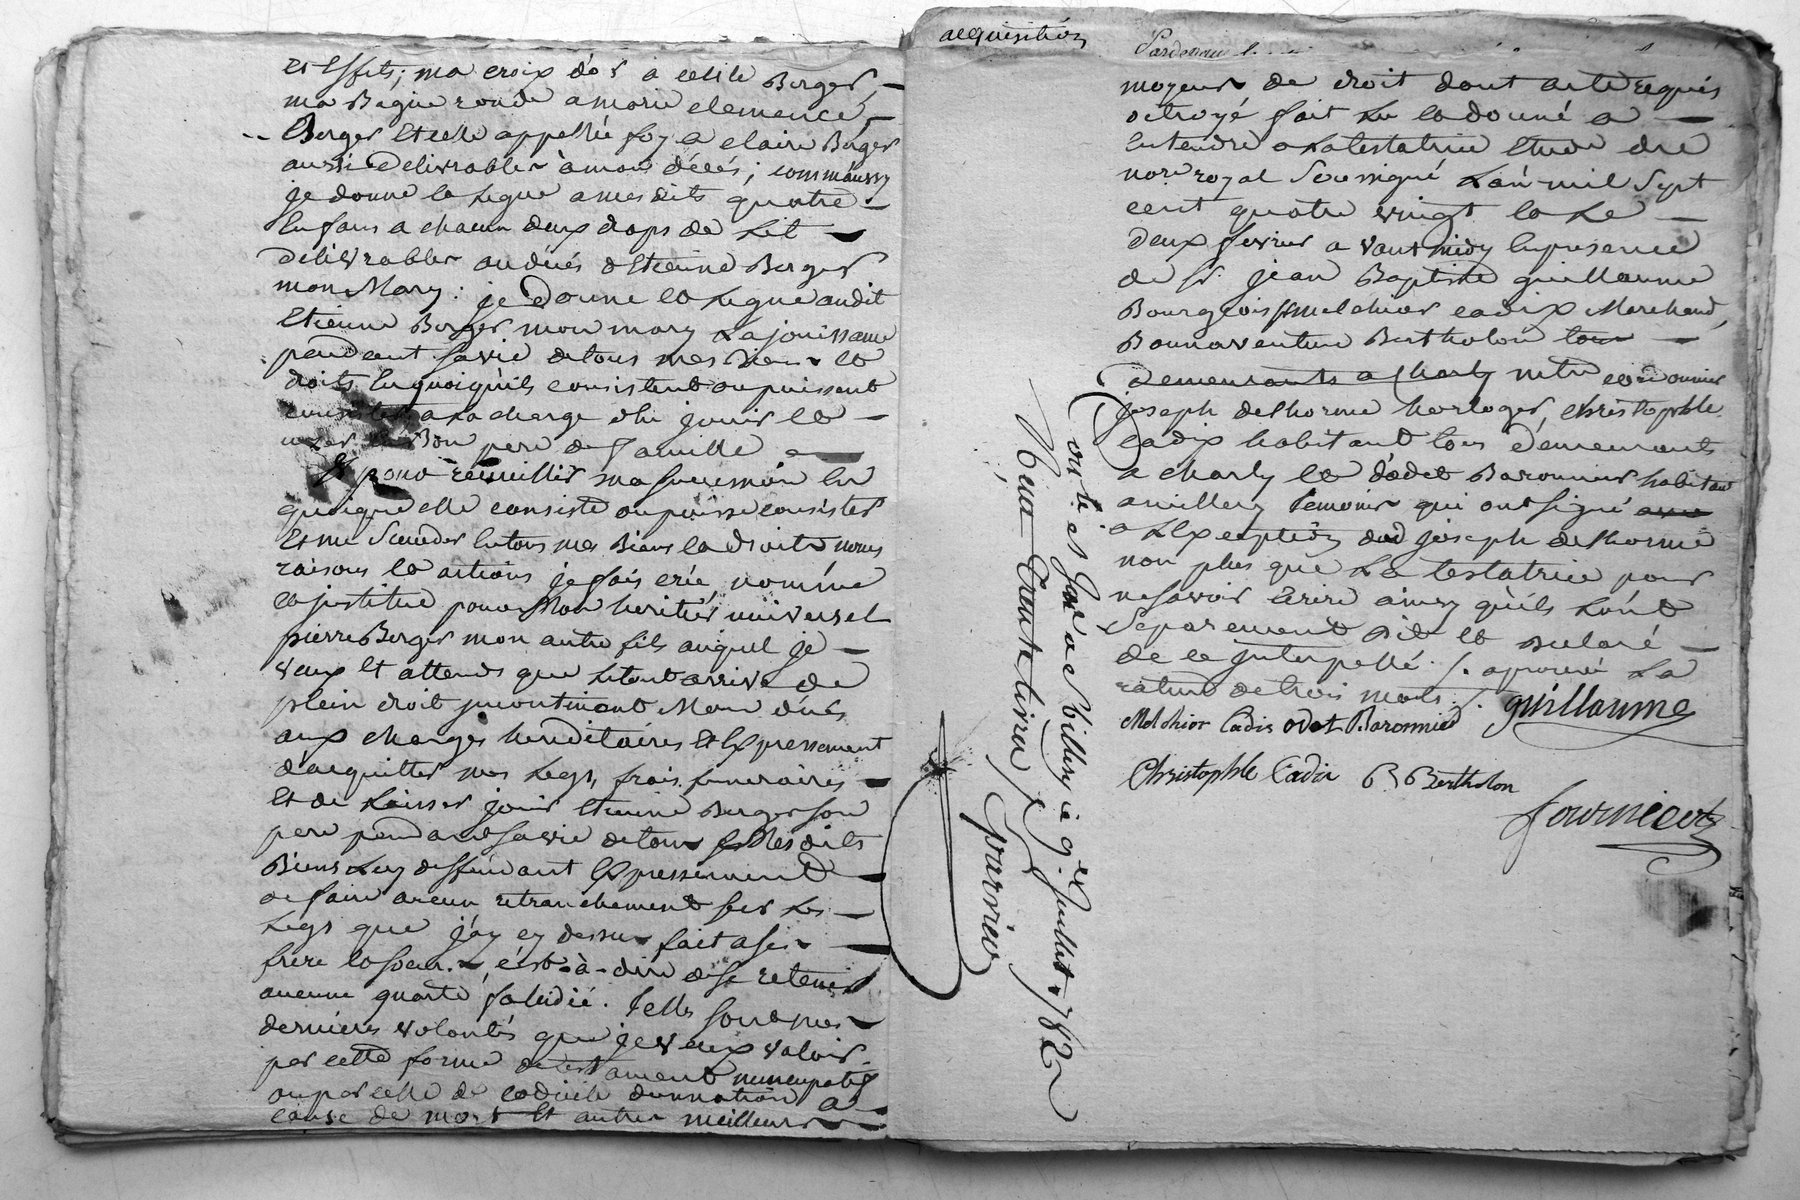 et Effets; ma croix d'or a cecile Berger,
ma Bague ronde a marie clemence
Berger et celle appellée foy a claire Berger
aussi Delivrables à mond déces; comm'aussy
je donne et Legue a mesdits quatre
Enfans a chacun deux draps de Lit
Délivrables audécés d'Etienne Berger
mon Mary: je Donne et Legue audit
Etienne Berger mon mary La jouissance
pendant sa vie de tous mes Biens et
droits En quoiqu'ils consistent ou puissent
consister a La charge d'En jouir et
user En Bon pere de famille
Et pour recueillir ma succession En
quoique elle consiste ou puisse consister
Et me Succeder En tous mes Biens et droits noms
raisons et actions je fais crée, nomme
et institue pour Mon heritier universel
pierre Berger mon autre fils auquel je
veux Et attends que Le tout arrive de
plein droit incontinent Mon décés
aux charges hereditaires Et Expressement
d'acquitter mes Legs, frais funeraires
Et de Laisser jouir Etienne Berger son
pere pendant sa vie de tous Mesdits
Biens Luy deffendant Expressement
de faire aucun retranchement sur Les
Legs que j'ay cy dessus fait a ses
frere et sœur. c'est-à-dire de se retenir
aucune quarte falcidie. Telles sont mes
dernieres volontés que je veux valoir
par cette forme de testament nuncupatif
ou par celle de codicile donnation a
cause de mort Et autres meilleurs
acquisition
moyens de droit dont acte requis
octroyé fait Lu et donné a
Entendre a La testatrice Etude du
nore royal Soussigné L'an mil Sept
cent quatre vingt et Le
deux fevrier avant midy En presence
de Sr jean Baptiste guillaume
Bourgeois Sr melchior cadix Marchand,
Bonnaventure Bertholon tous
demeurants a Charly mtre cordonnier
joseph delhorme horloger, christophle
cadix habitant tous demeurants
a charly et d'odet Baronnier habitant
a millery temoins qui ont signé
a L'Exception dud joseph delhorme
non plus que La testatrice pour
ne savoir Ecrire ainsy qu'ils L'ont
Séparement Dit et Declaré
de ce Interpellé. /. aprouvé La
rature de trois mots. /. guillaume
Melchior Cadix odet Baronnier
Christophle Cadix B Bertholon
fournicot
conté et Jnsé a Millery ce 9e Juillet 1782
Reçu trente livres /. Gparrieu